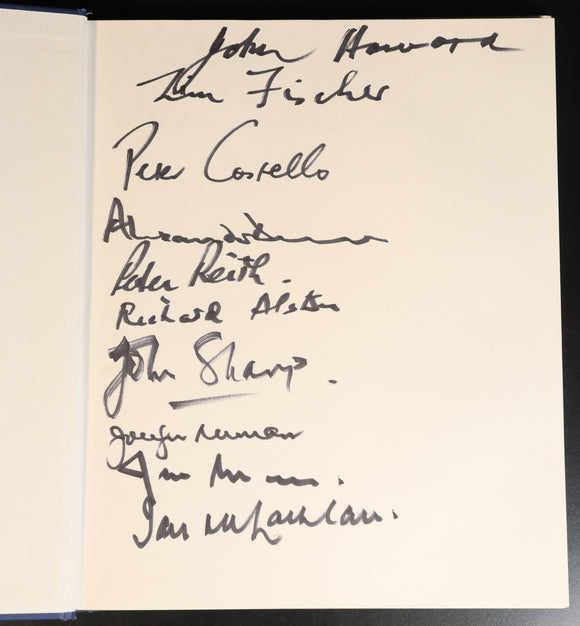 John Howard
Tim Fischer
Peter Costello
Alexander
Peter Reith.
Richard Alston
John Sharp.
Jocelyn Newman
Ian McLachlan.